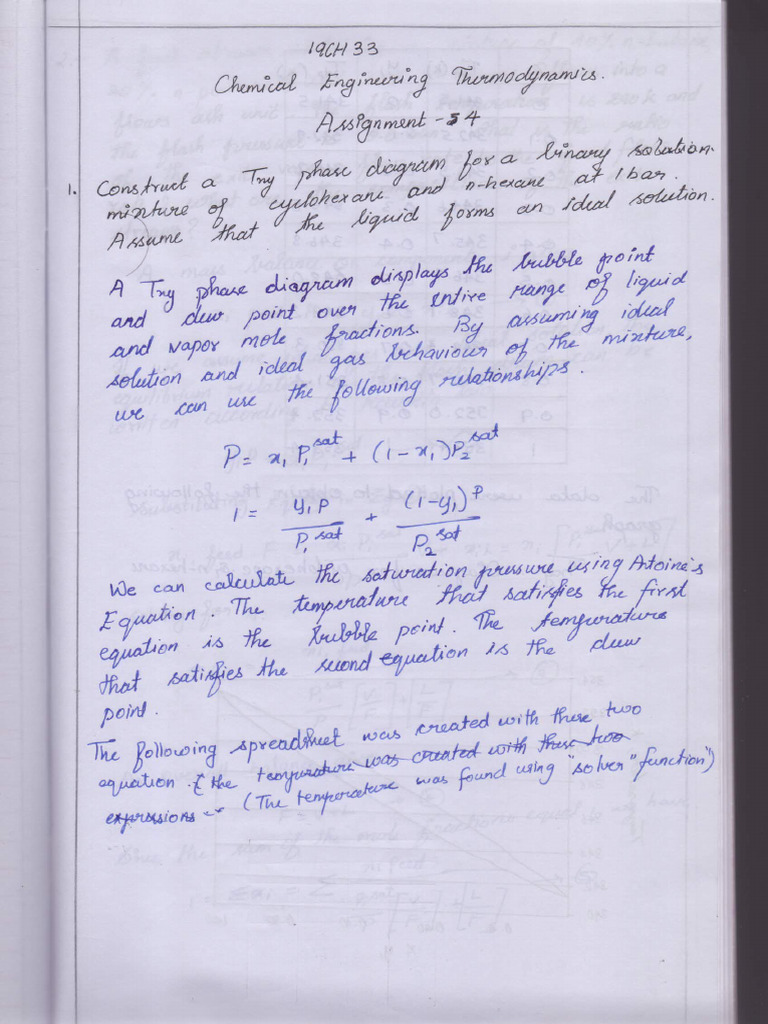 19CH33
Chemical Engineering Thermodynamics.
Assignment - 4
1. Construct a Txy phase diagram for a binary solution.
mixture of cyclohexane and n-hexane at 1 bar.
Assume that the liquid forms an ideal solution.
A Txy phase diagram displays the bubble point
and dew point over the entire range of liquid
and vapor mole fractions. By assuming ideal
solution and ideal gas behaviour of the mixture,
we can use the following relationships.
P = x₁ P₁^sat + (1 - x₁) P₂^sat
1 = y₁P / P₁^sat + (1-y₁)P / P₂^sat
We can calculate the saturation pressure using Antoine's
Equation. The temperature that satisfies the first
equation is the bubble point. The temperature
that satisfies the second equation is the dew
point.
The following spreadsheet was created with these two
equation & the temperature was created with these two
expressions - (The temperature was found using "solver" function")